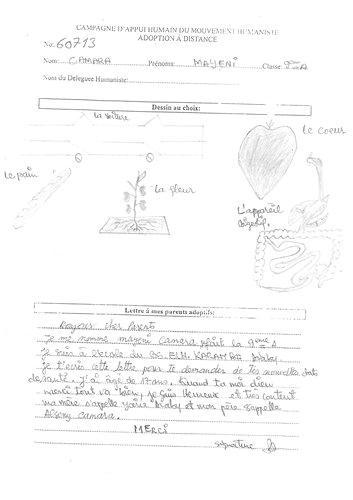 CAMPAGNE D'APPUI HUMAIN DU MOUVEMENT HUMANISTE
ADOPTION À DISTANCE
No: 60713
Nom: CAMARA Prénoms: MAYENI Classe: 9ème A
Nom du Délégué Humaniste:
Dessin au choix:
La voiture
Le coeur
Le pain
La fleur
L'appareil
digestif
Lettre à mes parents adoptifs:
Bonjour cher Parents
Je me nomme mayeni Camara faisant la 9ème A
Je suis à l'école du GS. ELH. KARAMBA
Je t'écris cette lettre pour te demander de tes nouvelles
de santé. J'ai âge de 17 ans. Quand ta moi dieu
merci tout va bien, je suis Heureuse et très content
ma mère s'appelle et mon père s'appelle
Alseny Camara.
MERCI
signature